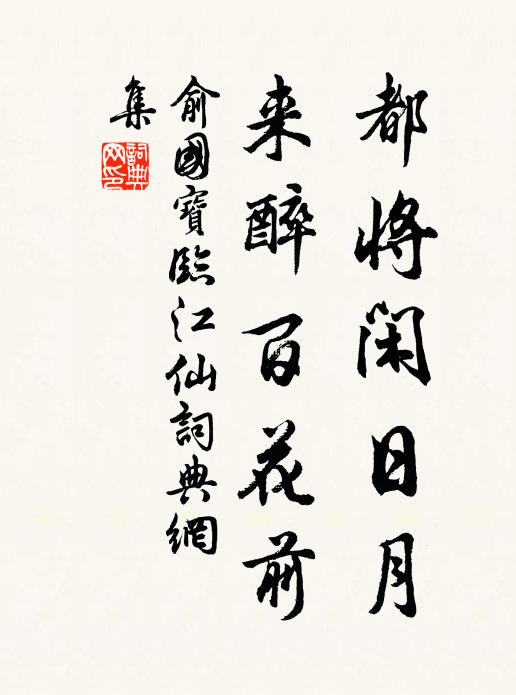 都将閑日月
来醉百花前
俞國寶臨江仙詞典網
集
詞典网印